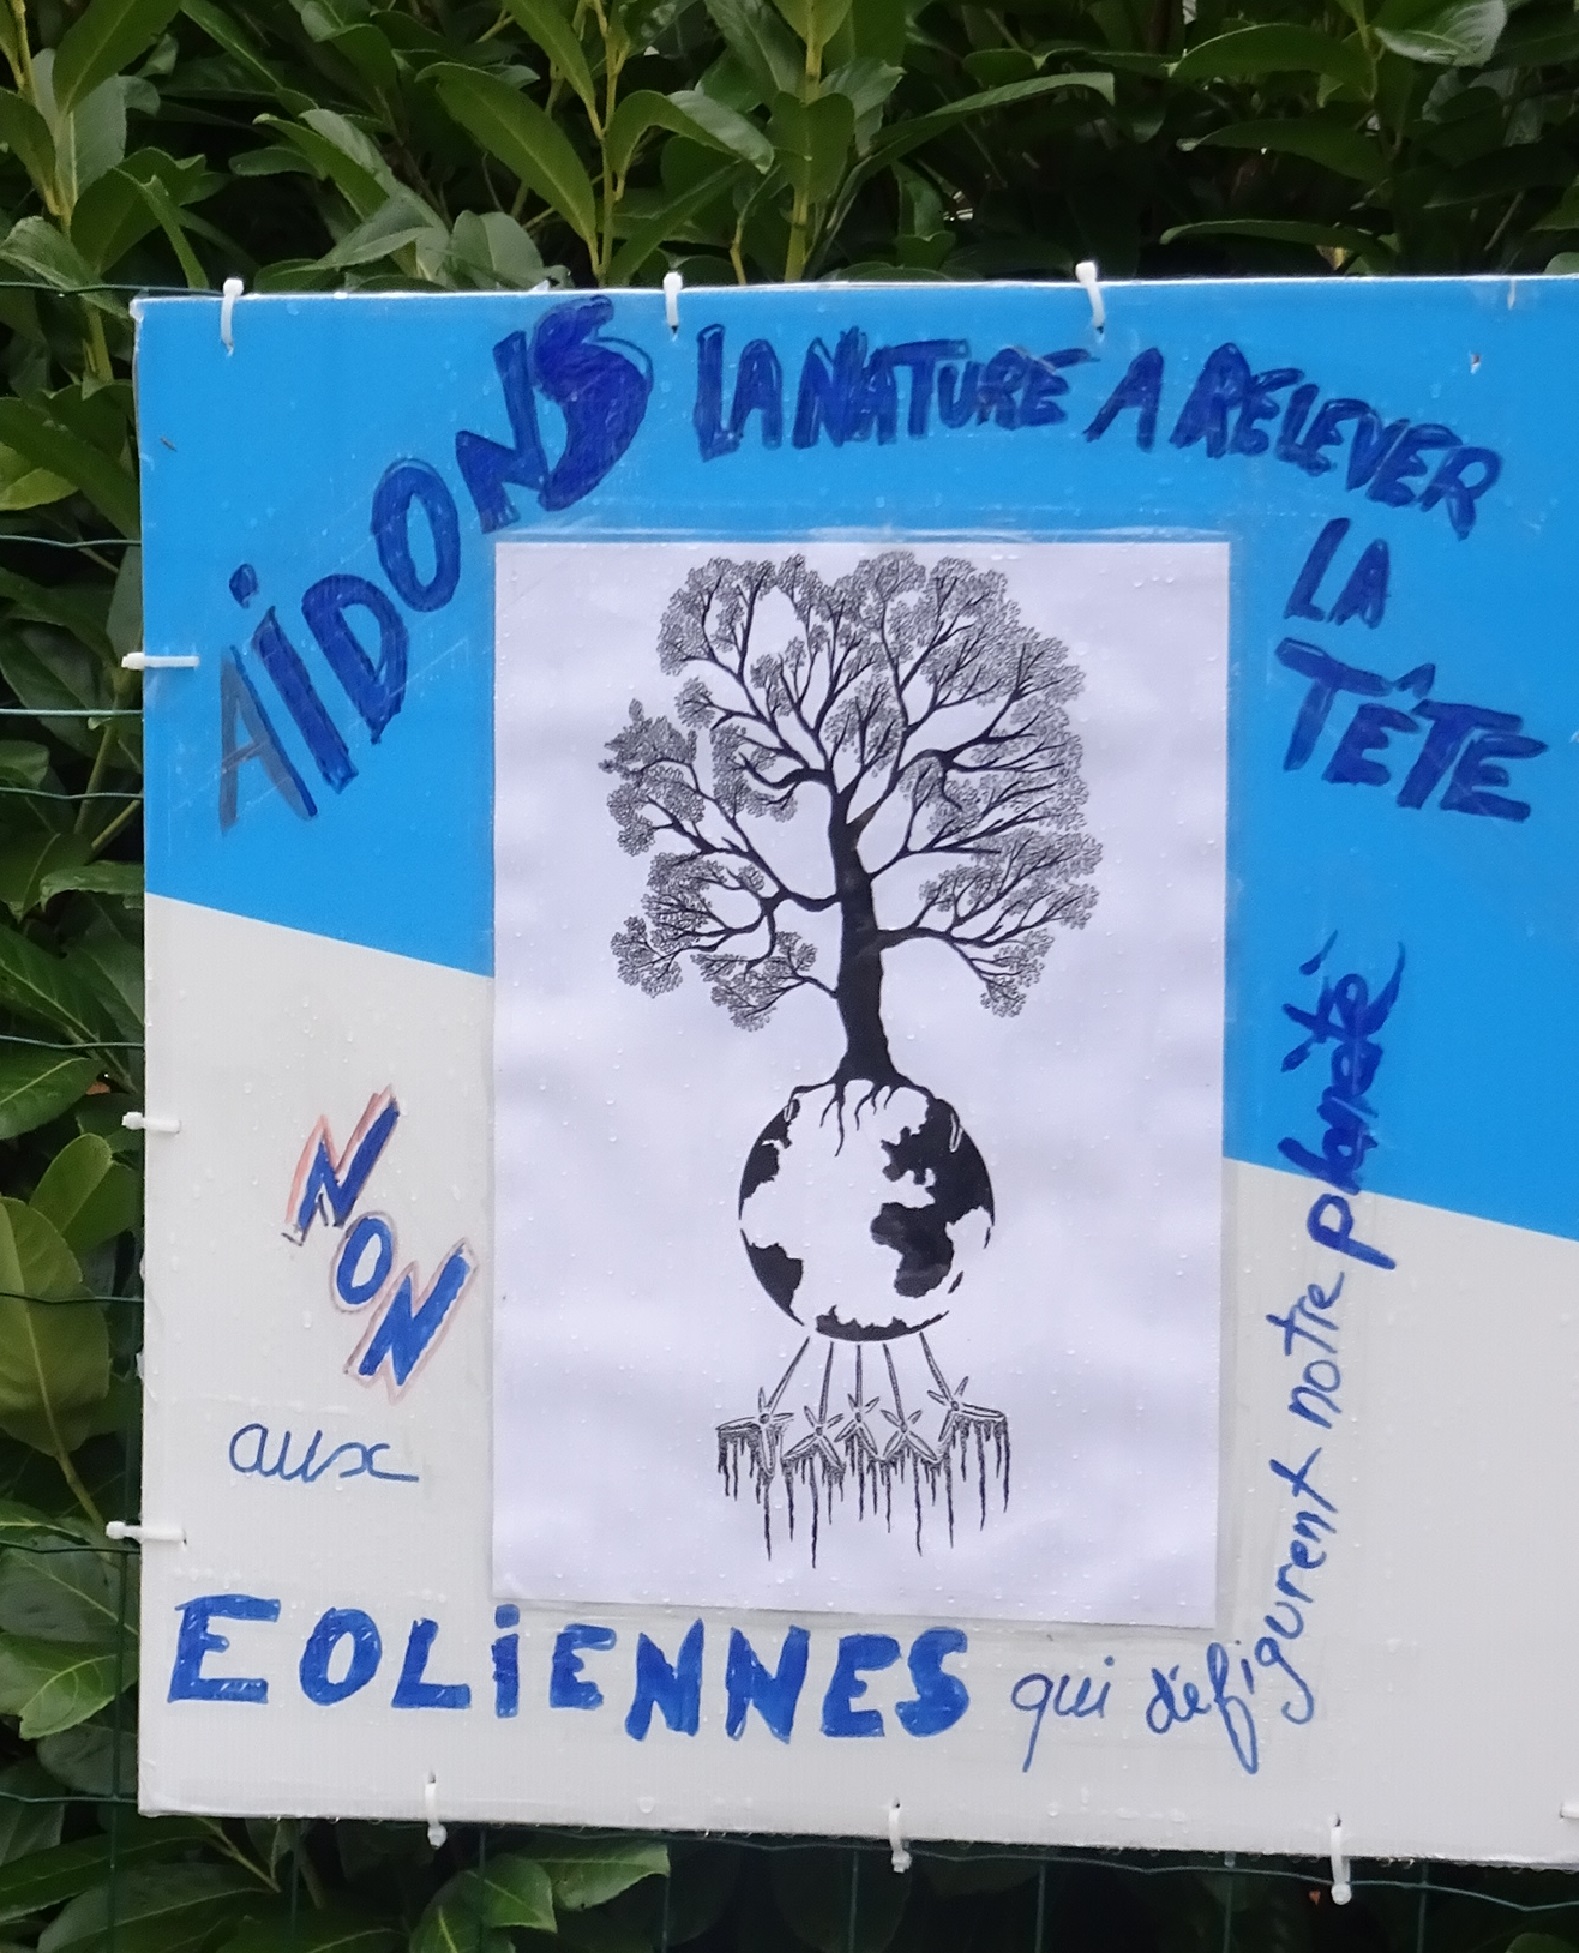 AÏDONS LA NATURE A RELEVER
LA
TÊTE
NON
aux
EOLiENNES qui défigurent notre planète